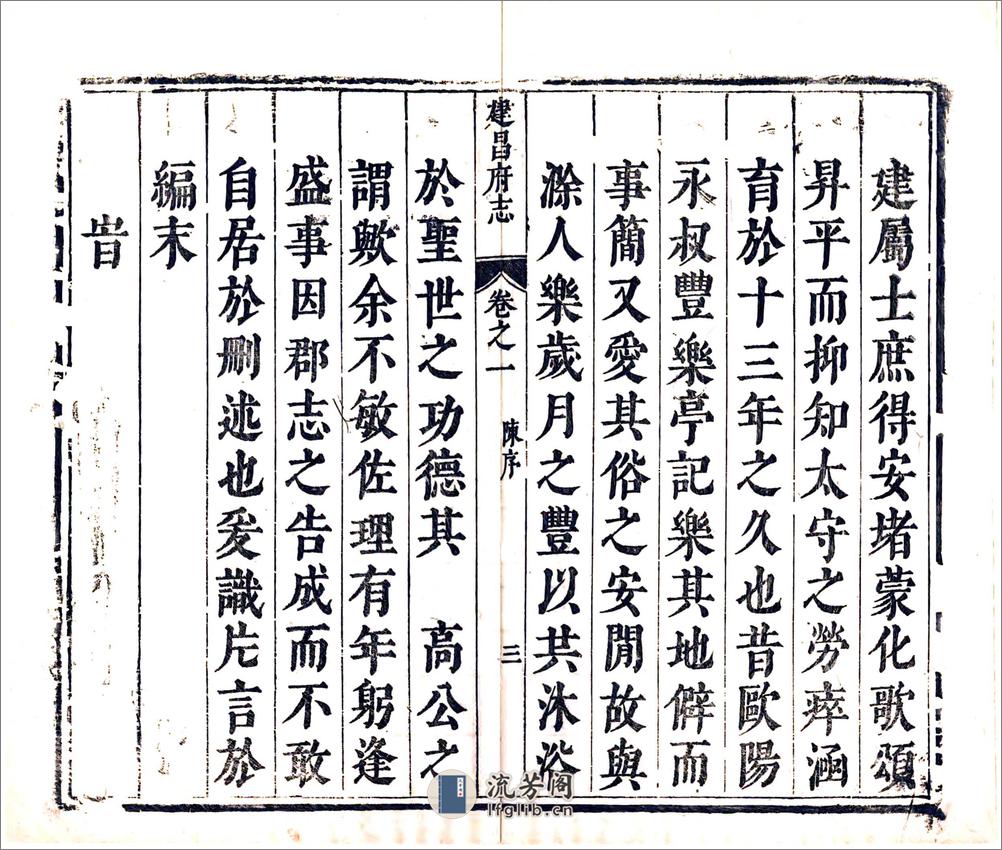 建屬士庶得安堵蒙化歌頌
昇平而抑知太守之勞瘁涵
育於十三年之久也昔歐陽
永叔豐樂亭記樂其地僻而
事簡又愛其俗之安閒故與
滁人樂歲月之豐以共沐浴
建昌府志
卷之一
陳序
三
於聖世之功德其 高公之
謂歟余不敏佐理有年躬逢
盛事因郡志之告成而不敢
自居於刪述也爰識片言於
編末
旹
流芳阁
lfglib.cn